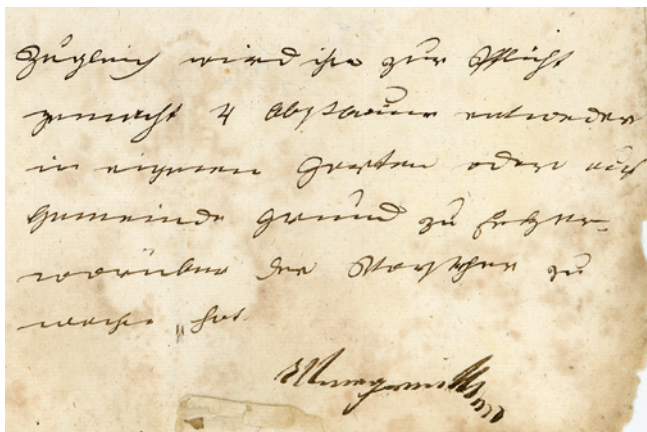 Zugleich wird ihm zur Pflicht
gemacht 4 Obstbäume entweder
in eigenen Garten oder auf
Gemeinde Grund zu setzen
worüber der Vorsteher zu
wachen hat.